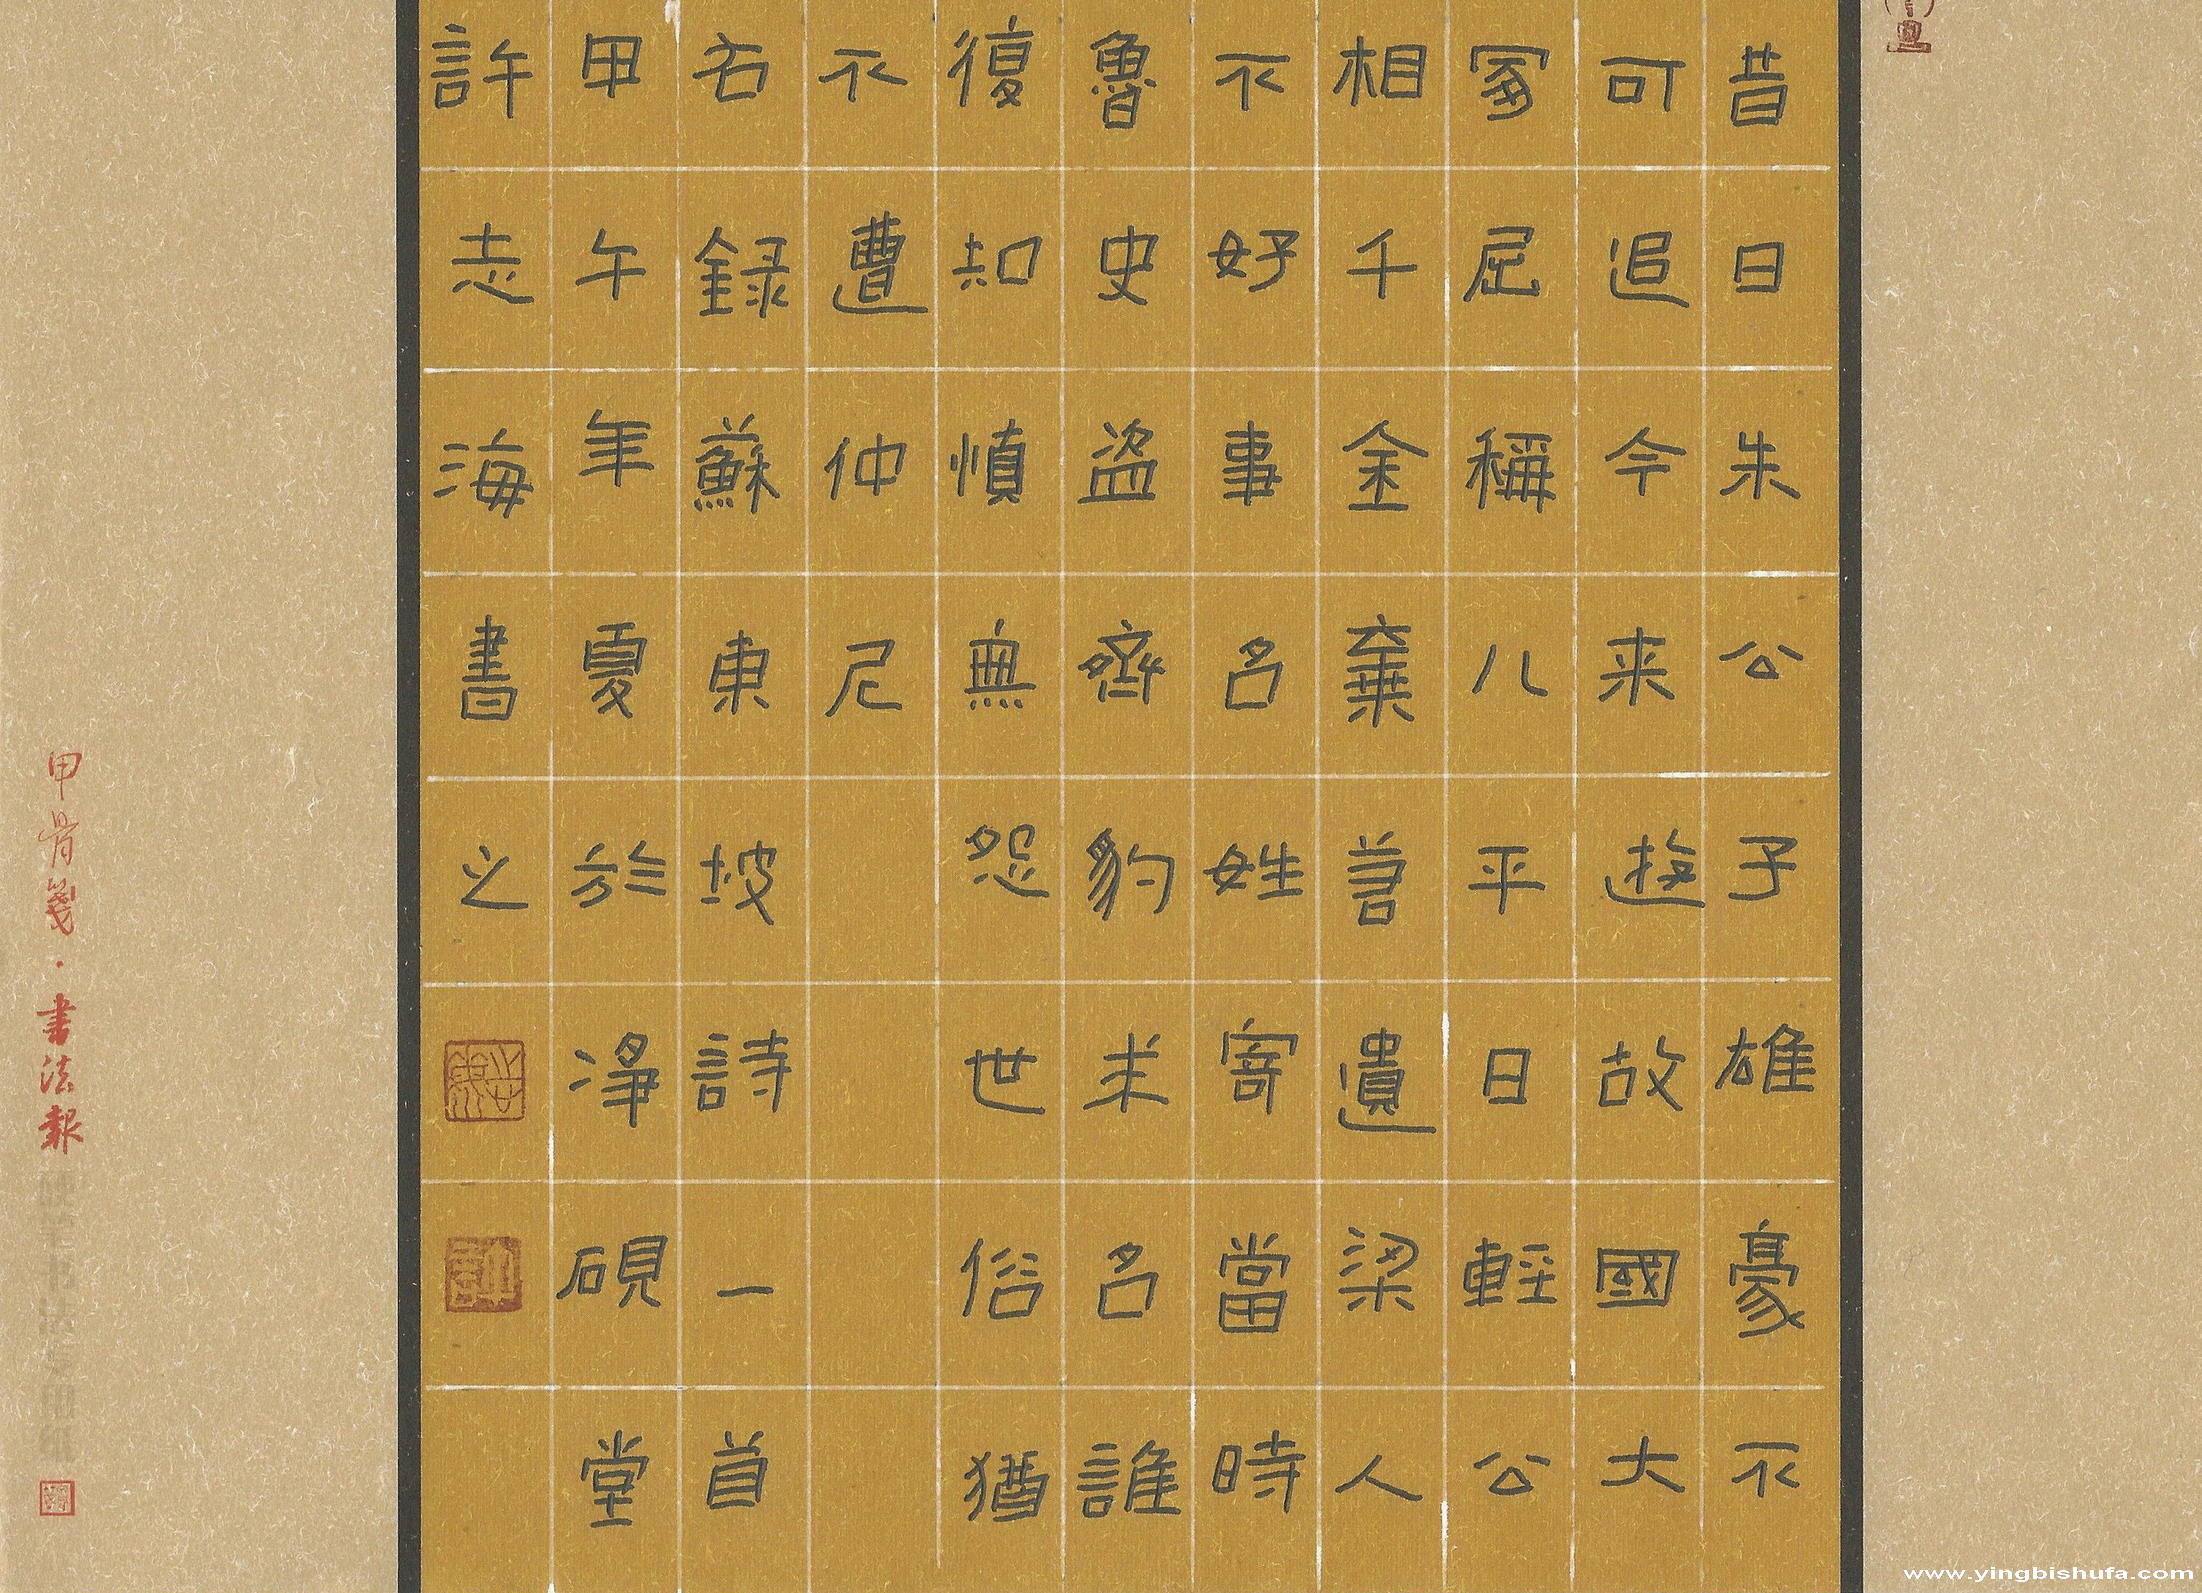 昔日朱公子雄豪不
可追今来遊故國大
冢屈稱八平日輕公
相千金棄若遺梁人
不好事名姓寄當時
魯史盜齊豹求名誰
復知慎無怨世俗猶
不遭仲尼
名錄蘇東坡詩一首
甲午年夏於淨硯堂
許志海書之
甲骨箋·書法報
www.yingbishufa.com